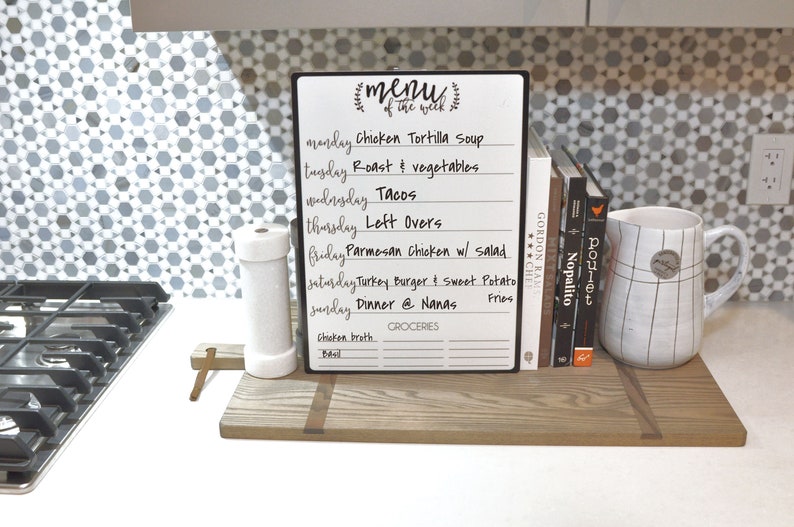 menu
of the week
monday Chicken Tortilla Soup
tuesday Roast & vegetables
wednesday Tacos
thursday Left Overs
friday Parmesan Chicken w/ Salad
saturday Turkey Burger & Sweet Potato
Fries
sunday Dinner @ Nanas
GROCERIES
Chicken broth
Basil
GORDON RAMS
CHEF
Nopalito
poulet